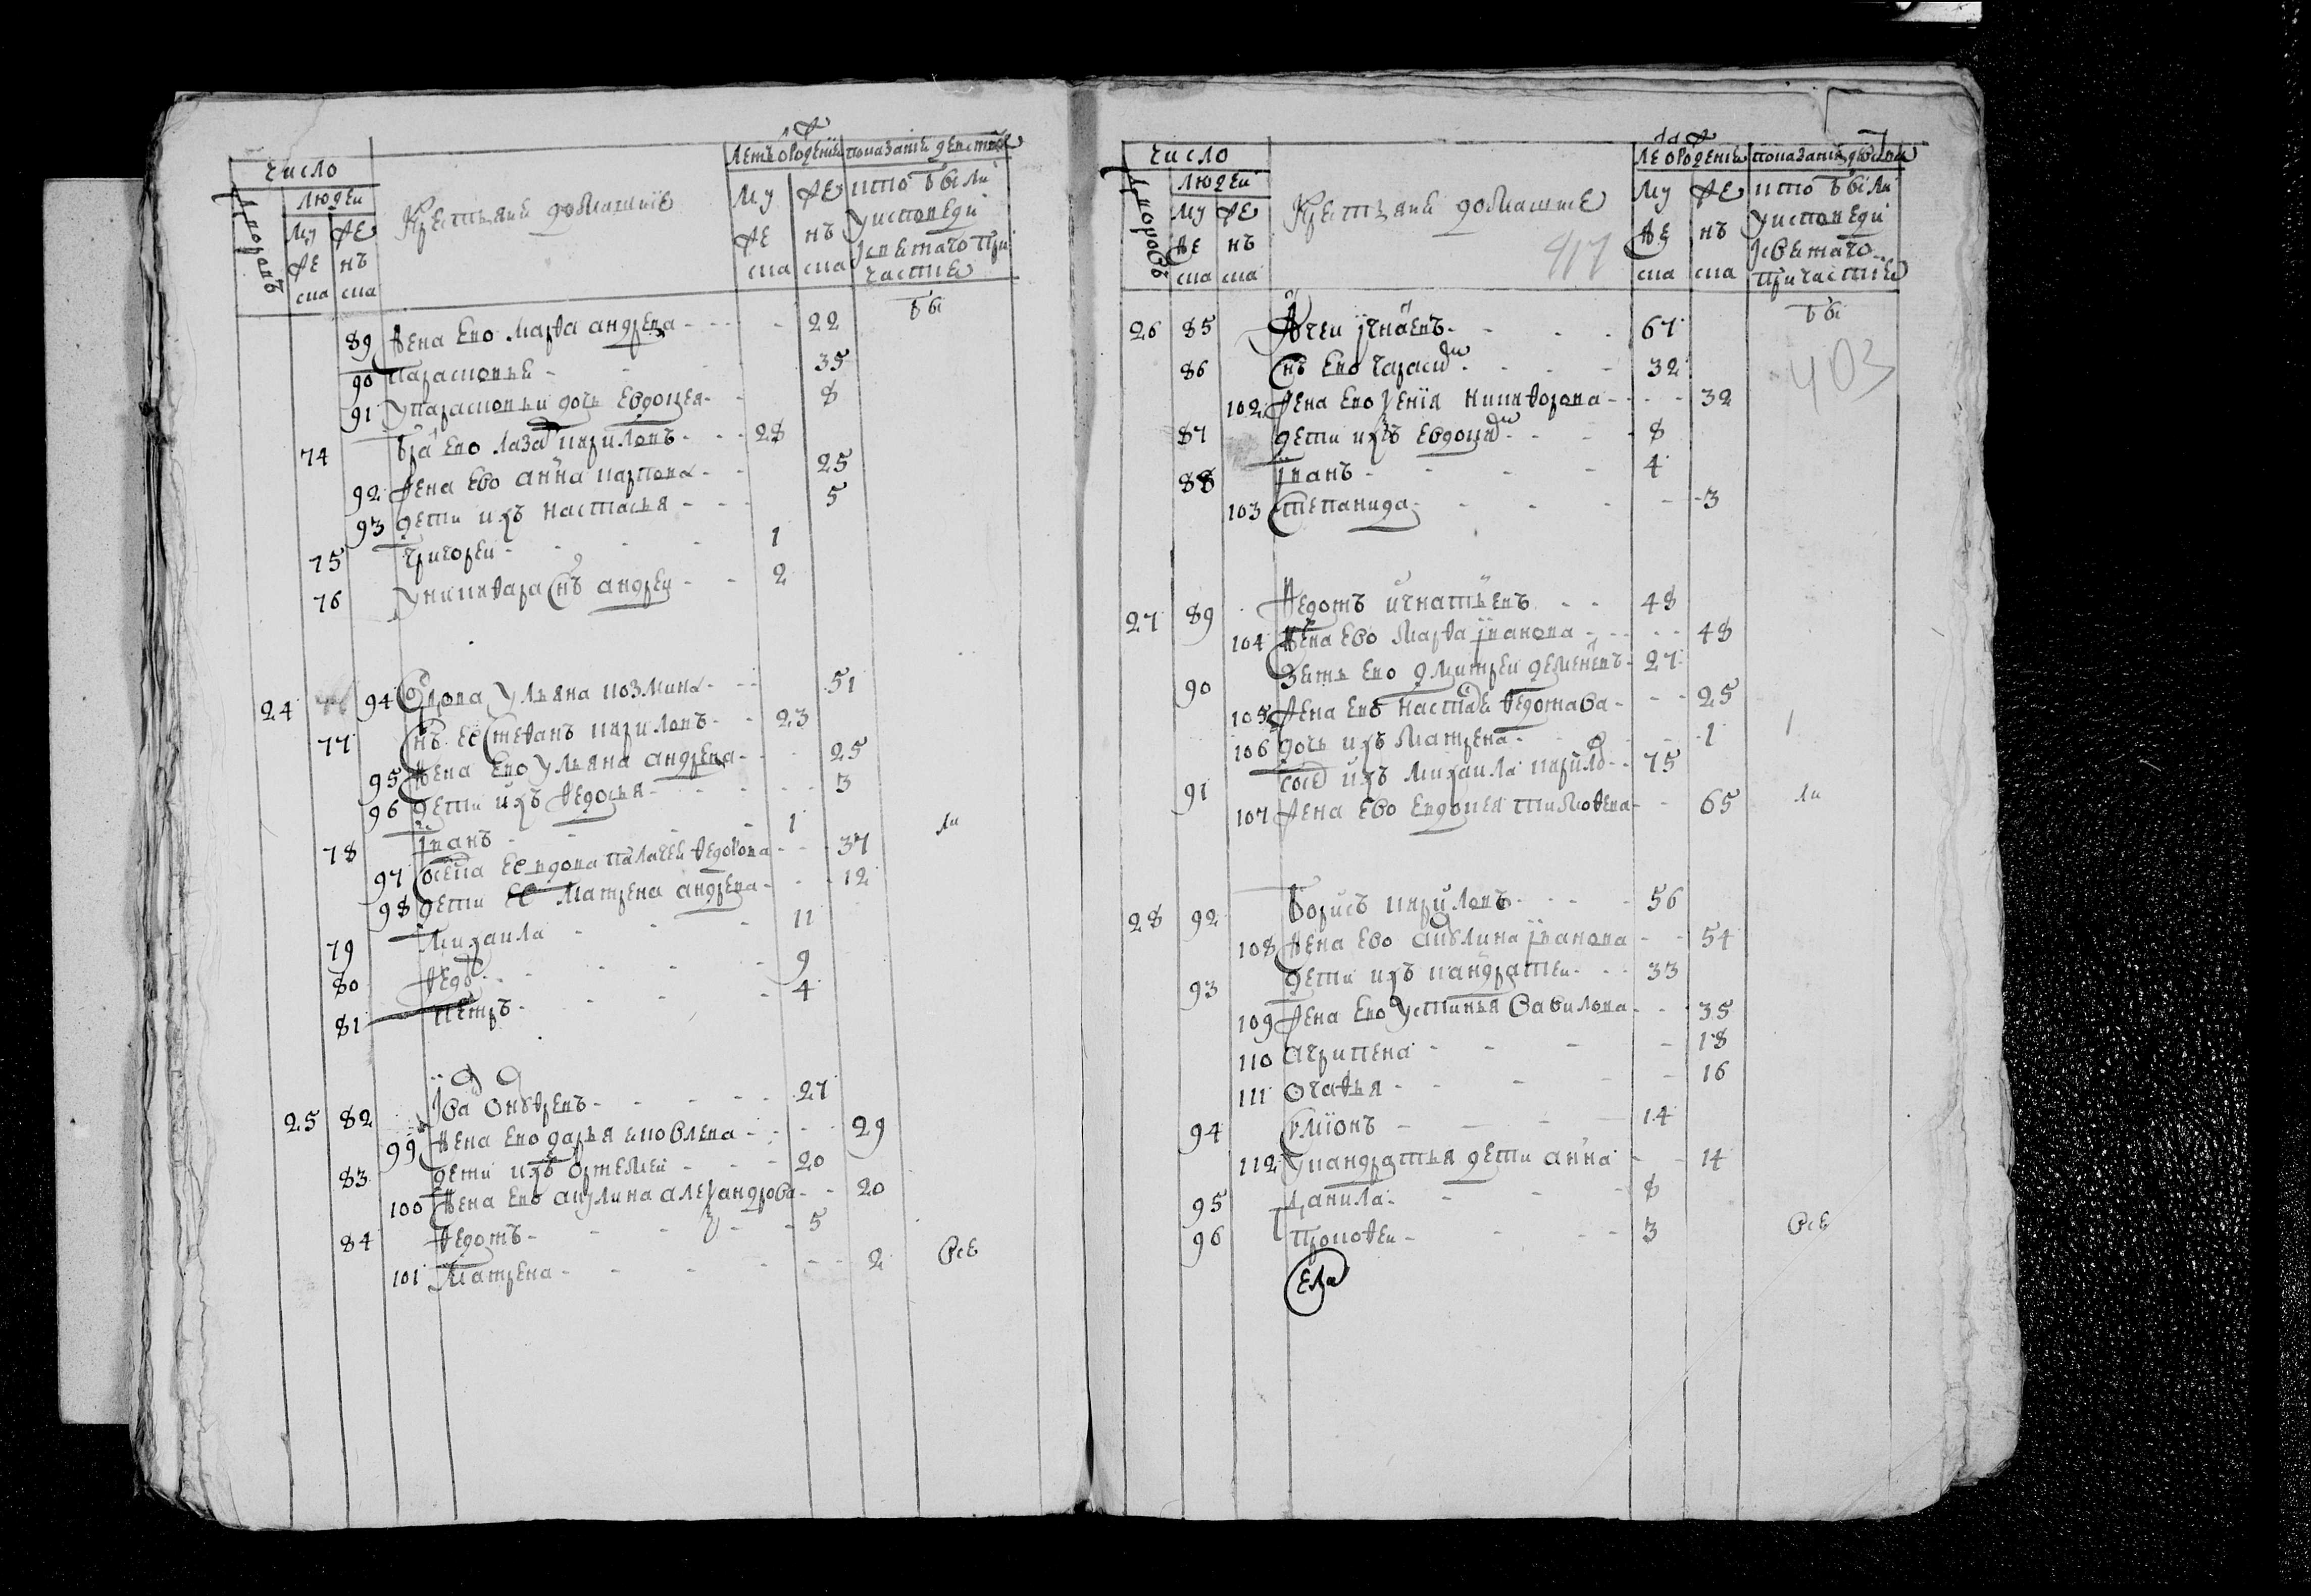 число
людеи
дворовъ
му жеска
же нъска
Крестьяне домашние
летъ от рождения
му жеска
же нъска
показание действа
кто были
у исповеди
и светаго при
частия
бы
89 жена ево марфа андреева - - - 22
90 парасковьи - - - 35
91 у парасковьи дочь евдокея - - 8
74 бра ево лаза кириловъ - - 28
92 жена ево анна карпова - - 25
93 дети ихъ настасья - - - 5
75 григореи - - - 1
76 у никифара снъ андреи - - 2
24 94 вдова ульяна козмина - - 51
77 снъ ее стефанъ кириловъ - - 23
95 жена ево ульяна андреева - - 25
96 дети ихъ федосья - - - 3
78 иванъ - - - 1
97 вдова палагея федорова - - - 37 ли
98 дети ее матрена андреева - - 12
79 михаила - - - 11
80 федо - - - 9
81 петръ - - - 4
25 82 ива онуфревъ - - - 27
99 жена ево дарья яковлева - - - 29
83 дети ихъ ортемеи - - - 20
100 жена ево акулина алезандрова - - 20
84 федотъ - - - 5
101 матрена - - - 2 все
число
людеи
дворовъ
му жеска
же нъска
Крестьяне домашние
417
ле от рождения
му жеска
же нъска
показание действа
кто были
у исповеди
и светаго
причастия
бы
26 85 игнаевъ - - - 67
403
86 снъ ево гараси - - - 32
102 жена ево ксения никифорова - - - 32
87 дети ихъ евдоки - - - 8
88 иванъ - - - 4
103 степанида - - - 3
27 89 федотъ игнатьевъ - - 48
104 жена ево марфа иванова - - - 48
90 зять ево дмитреи дементевъ - 27
105 жена ево наста федотава - - - 25
106 дочь ихъ матрена - - - 1
91 сосе ихъ михаила кирило - - 75
107 жена ево евдокея тимофева - - 65 ли
28 92 борисъ кириловъ - - - 56
108 жена ево акулина иванова - - 54
93 дети ихъ кандратеи - - - 33
109 жена ево устинья савилова - - - 35
110 агрипена - - - 18
111 огафья - - - 16
94 - - - 14
112 у кандратья дети анна - - 14
95 данила - - - 8
96 прокофеи - - - 3 все